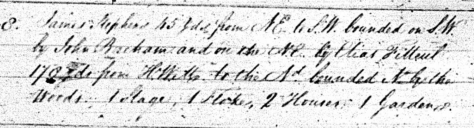 8. James Stephens 45 yds from N.E. to S.W. bounded on S.W.
by John and on the N.E. by Elias
yds from H. to the Rd. bounded N. by the
Woods. 1 Stage, 1 Flake, 2 Houses, 1 Garden.